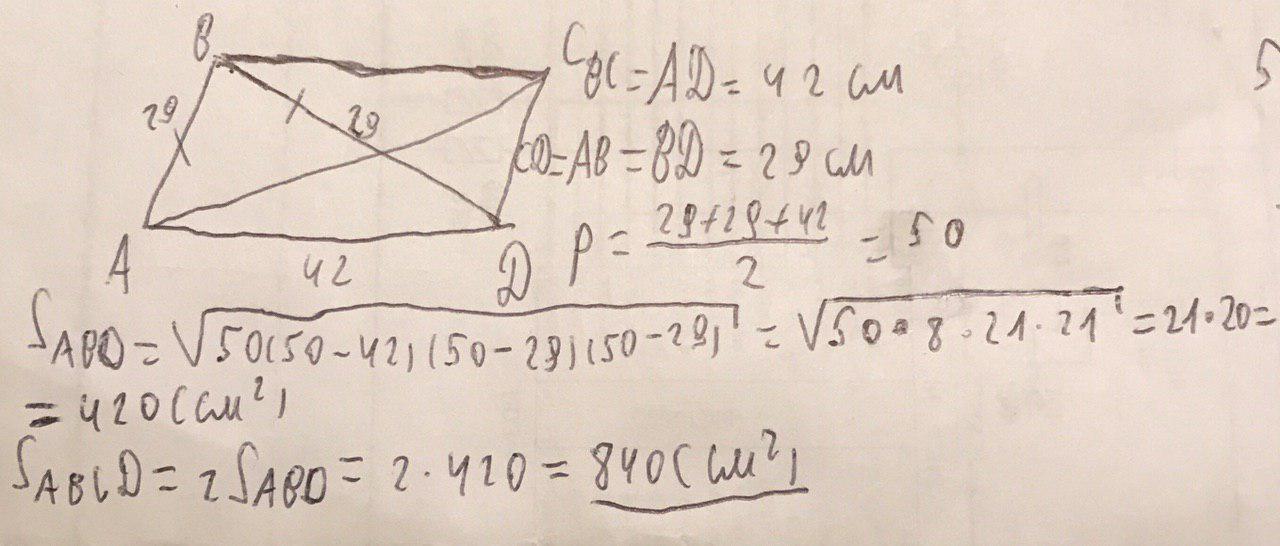 B
C BC = AD = 42 см
29
29
CD = AB = BD = 29 см
A
42
D
p = (29+29+42)/2 = 50
S_ABD = √50(50-42)(50-29)(50-29) = √50·8·21·21 = 21·20 =
= 420 (см²)
S_ABCD = 2S_ABD = 2·420 = 840 (см²)
5